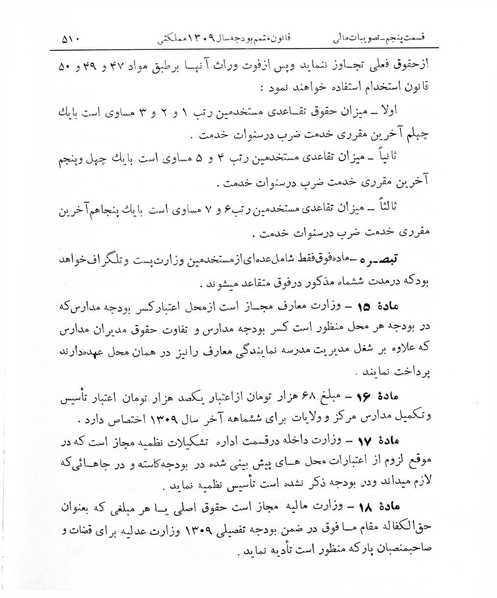 قسمت پنجم ـ تصویبات مالی    قانون متمم بودجه سال ۱۳۰۹ مملکتی    ۵۱۰
از حقوق فعلی تجاوز ننماید و پس از فوت وراث آنها بر طبق مواد ۴۷ و ۴۹ و ۵۰
قانون استخدام استفاده خواهند نمود :
اولا ـ میزان حقوق تقاعدی مستخدمین رتب ۱ و ۲ و ۳ مساوی است با یك
چهلم آخرین مقرری خدمت ضرب در سنوات خدمت .
ثانیاً ـ میزان تقاعدی مستخدمین رتب ۴ و ۵ مساوی است با یك چهل و پنجم
آخرین مقرری خدمت ضرب در سنوات خدمت .
ثالثاً ـ میزان تقاعدی مستخدمین رتب ۶ و ۷ مساوی است با یك پنجاهم آخرین
مقرری خدمت ضرب در سنوات خدمت .
تبصره ـ ماده فوق فقط شامل عده‌ای از مستخدمین وزارت پست و تلگراف خواهد
بود که در مدت ششماه مذکور در فوق متقاعد میشوند .
مادهٔ ۱۵ ـ وزارت معارف مجاز است از محل اعتبار کسر بودجه مدارس که
در بودجه هر محل منظور است کسر بودجه مدارس و تفاوت حقوق مدیران مدارس
که علاوه بر شغل مدیریت مدرسه نمایندگی معارف را نیز در همان محل عهده دارند
پرداخت نمایند .
مادهٔ ۱۶ ـ مبلغ ۶۸ هزار تومان از اعتبار یکصد هزار تومان اعتبار تأسیس
و تکمیل مدارس مرکز و ولایات برای ششماهه آخر سال ۱۳۰۹ اختصاص دارد .
مادهٔ ۱۷ ـ وزارت داخله در قسمت اداره تشکیلات نظمیه مجاز است که در
موقع لزوم از اعتبارات محل های پیش بینی شده در بودجه کاسته و در جاهائی که
لازم میداند و در بودجه ذکر نشده است تأسیس نظمیه نماید .
مادهٔ ۱۸ ـ وزارت مالیه مجاز است حقوق اصلی یا هر مبلغی که بعنوان
حق الکفاله مقام ما فوق در ضمن بودجه تفصیلی ۱۳۰۹ وزارت عدلیه برای قضات و
صاحبمنصبان پارکه منظور است تأدیه نماید .